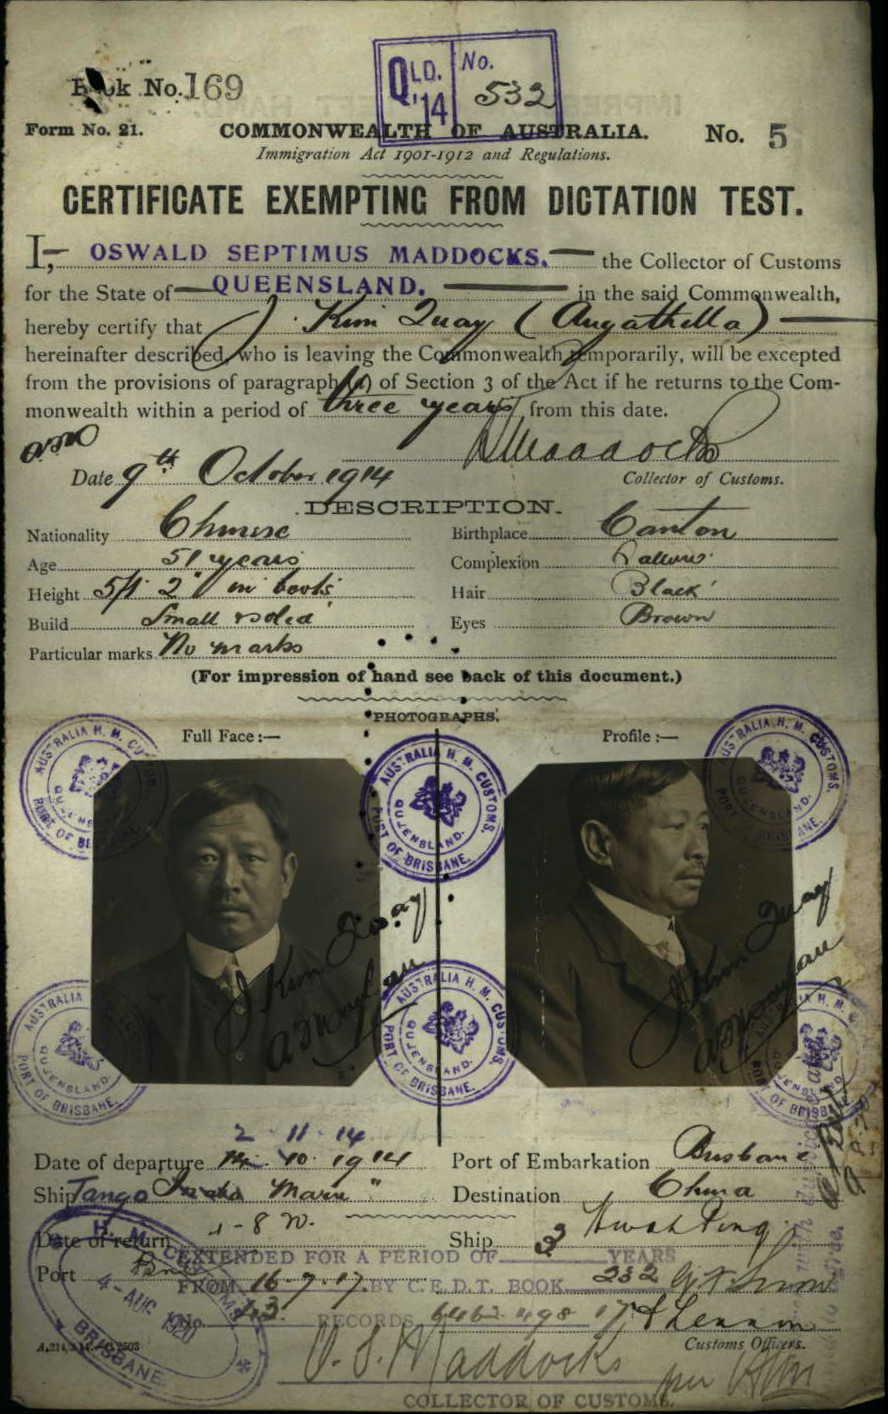 Book No. 169
QLD. '14 No. 532
Form No. 21. COMMONWEALTH OF AUSTRALIA. No. 5
Immigration Act 1901-1912 and Regulations.
CERTIFICATE EXEMPTING FROM DICTATION TEST.
I, OSWALD SEPTIMUS MADDOCKS, the Collector of Customs
for the State of QUEENSLAND. in the said Commonwealth,
hereby certify that J. Kim Quay (Augathella)
hereinafter described, who is leaving the Commonwealth temporarily, will be excepted
from the provisions of paragraph (a) of Section 3 of the Act if he returns to the Com-
monwealth within a period of three years from this date.
O S Maddocks
Date 9th October 1914 Collector of Customs.
DESCRIPTION.
Nationality Chinese Birthplace Canton
Age 51 years Complexion Sallow
Height 5ft 2" in boots Hair Black
Build Small & solid Eyes Brown
Particular marks No marks
(For impression of hand see back of this document.)
PHOTOGRAPHS.
Full Face:— Profile:—
AUSTRALIA H. M. CUSTOMS. PORT OF BRISBANE. QUEENSLAND.
AUSTRALIA H. M. CUSTOMS. PORT OF BRISBANE. QUEENSLAND.
AUSTRALIA H. M. CUSTOMS. PORT OF BRISBANE. QUEENSLAND.
J Kim Quay
J Kim Quay
AUSTRALIA H. M. CUSTOMS. PORT OF BRISBANE. QUEENSLAND.
AUSTRALIA H. M. CUSTOMS. PORT OF BRISBANE. QUEENSLAND.
AUSTRALIA H. M. CUSTOMS. PORT OF BRISBANE. QUEENSLAND.
2.11.14
Date of departure 14.10.1914 Port of Embarkation Brisbane
Ship Tango Maru" Destination China
Date of return 1-8-20. Ship Hwah Ping
EXTENDED FOR A PERIOD OF 3 YEARS
Port Bris
FROM 16.9.17. BY C.E.D.T. BOOK 232
No. 43 RECORDS 17
Customs Officers.
H. M. CUSTOMS 4-AUG 1920 BRISBANE
O. S. Maddocks
COLLECTOR OF CUSTOMS.